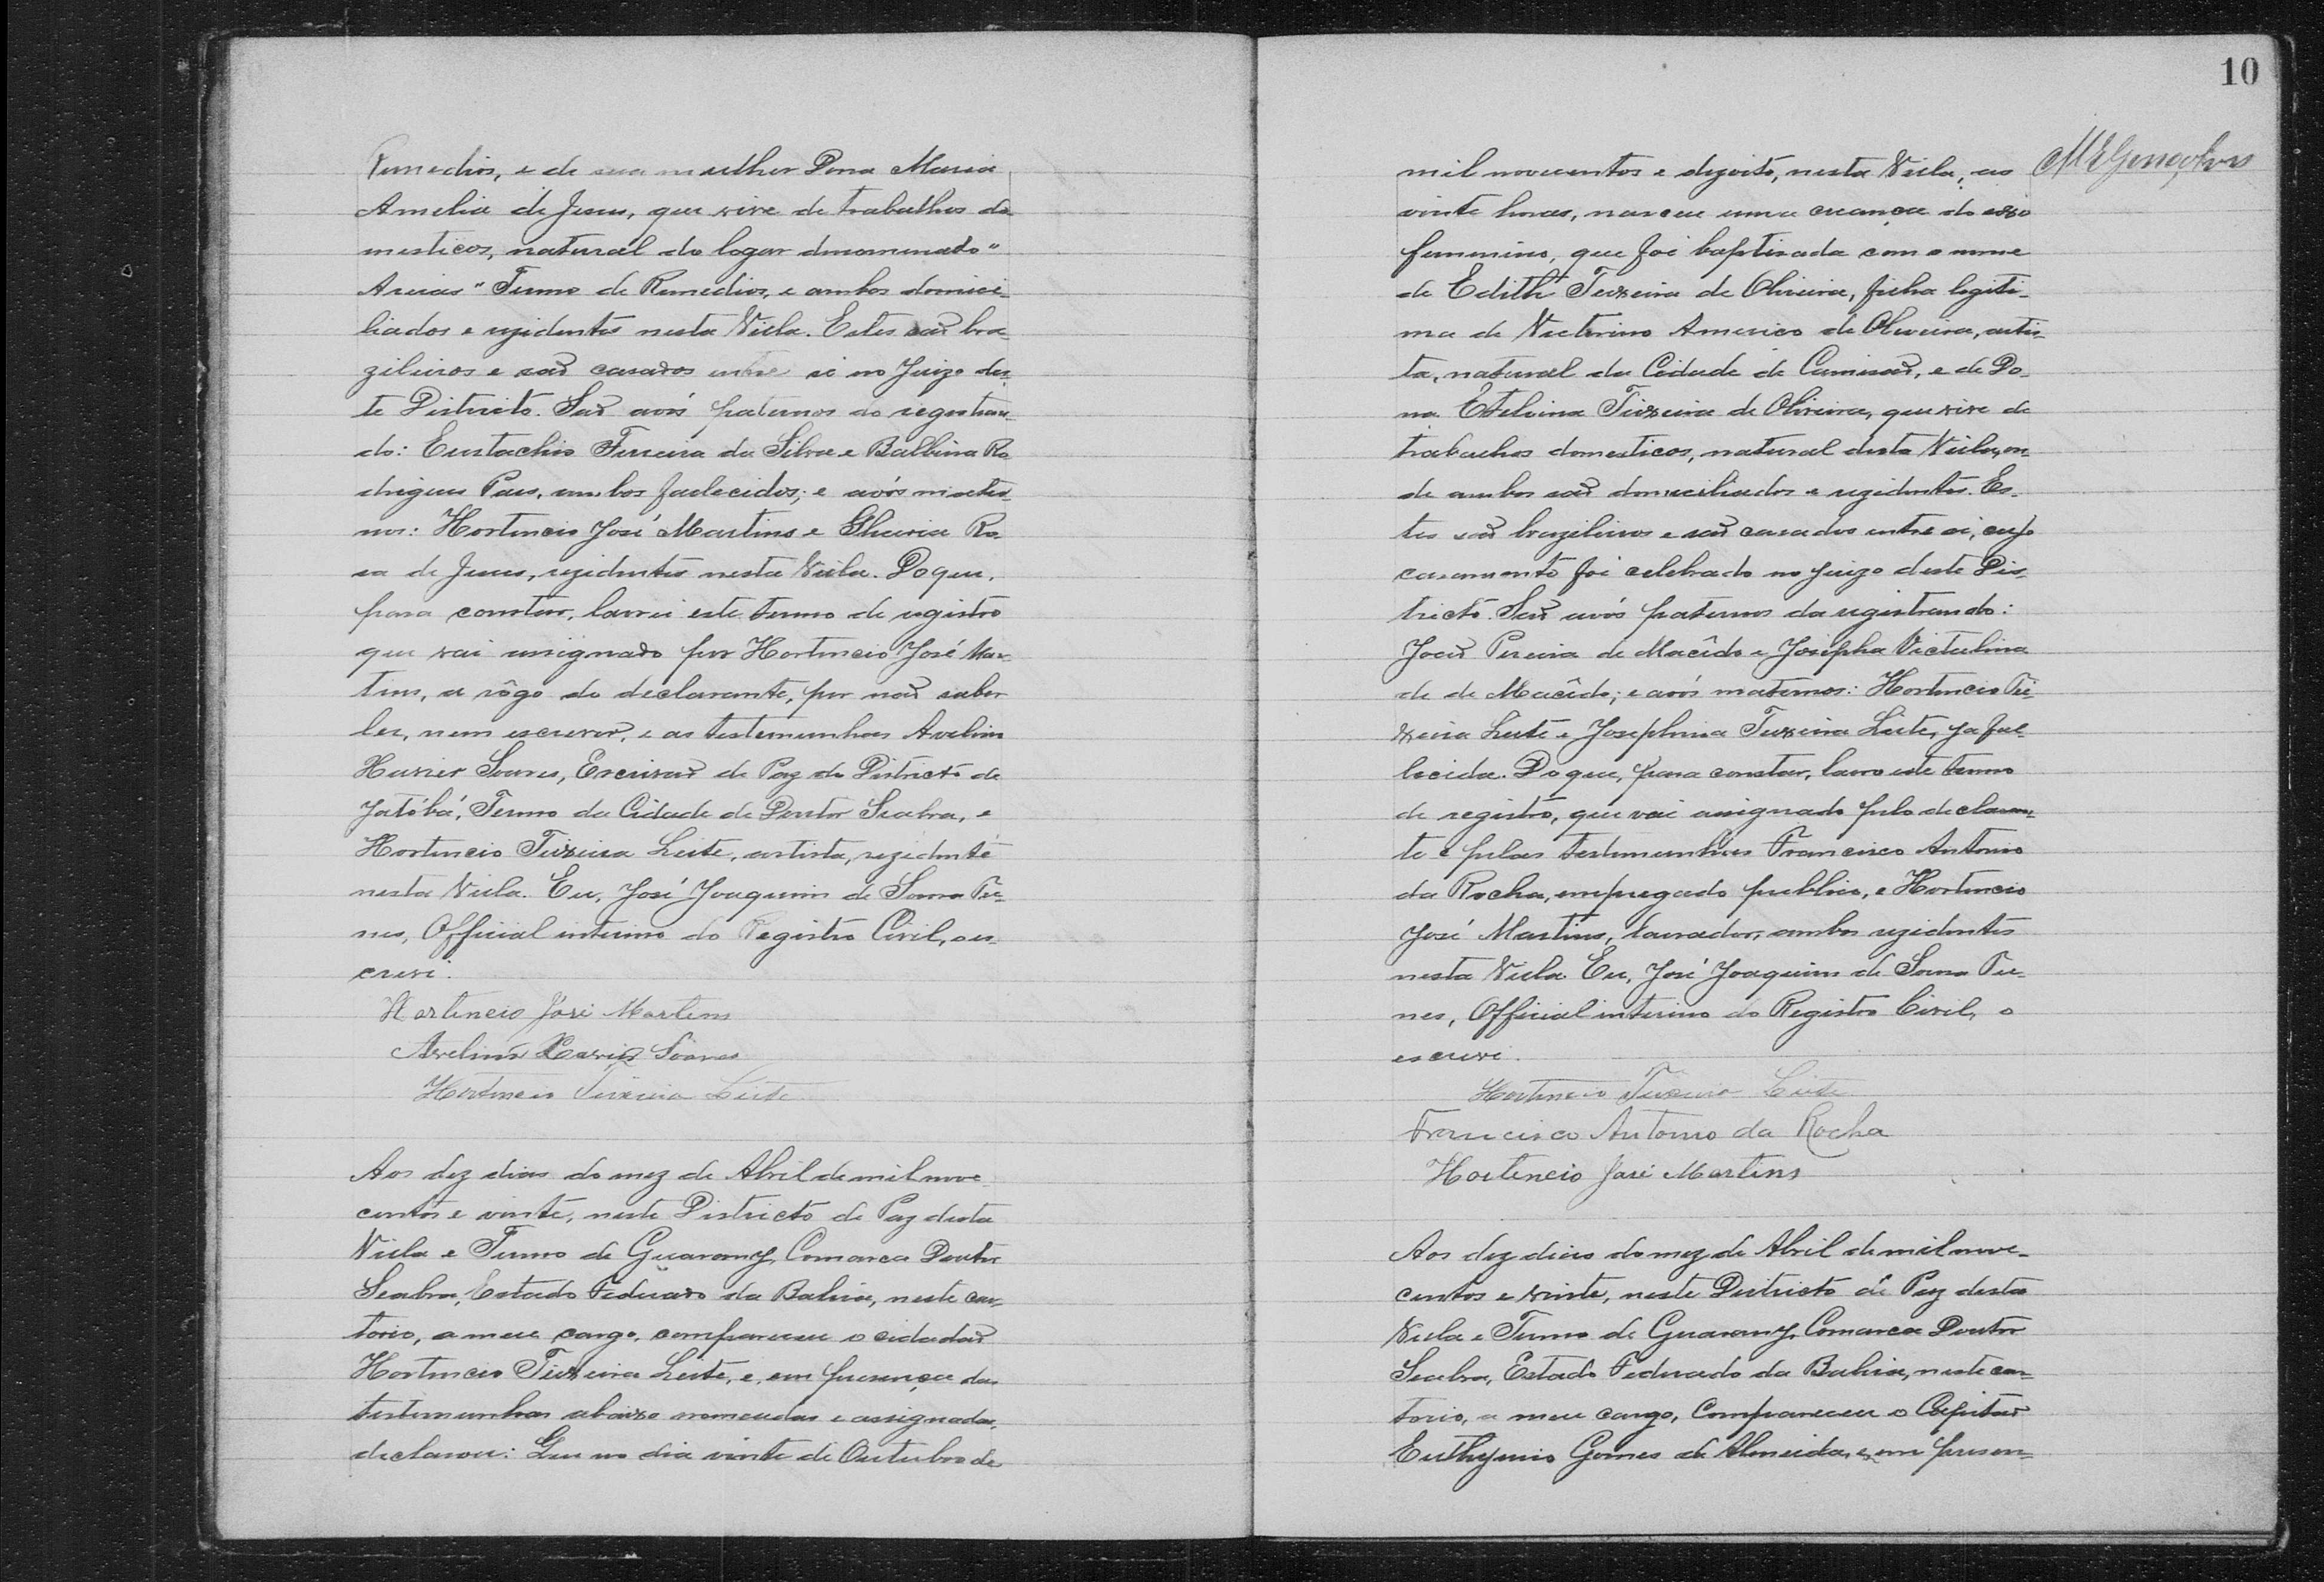 Remedios, e de sua mulher Dona Maria
Amelia de Jesus, que vive de trabalhos do-
mesticos, natural do logar denominado "
Areias" Termo de Remedios, e ambos domici-
liados e rezidentes nesta Villa. Estes saõ bra-
zileiros e saõ casados entre si no Juizo des-
te Districto. Saõ avós paternos do registran-
do: Eustachio Ferreira da Silva e Balbina Ro-
drigues Paes, ambos fallecidos; e avós mater-
nos: Hortencio José Martins e Ro-
sa de Jesus, rezidentes nesta Villa. Do que,
para constar, lavrei este termo de registro
que vai assignado por Hortencio José Mar-
tins, a rôgo do declarante, por naõ saber
ler, nem escrever, e as testemunhas Avelino
Xavier Soares, Escrivaõ de Paz do Districto de
Jatóbá, Termo da Cidade de Doutor Seabra, e
Hortencio Teixeira Leite, artista, rezidente
nesta Villa. Eu, José Joaquim de Souza
nes, Official interino do Registro Civil, o es-
crevi.
Hortencio José Martins
Avelino Xavier Soares
Hortencio Teixeira Leite
Aos dez dias do mez de Abril de mil nove-
centos e vinte, neste Districto de Paz desta
Villa e Termo de Guarany, Comarca Doutor
Seabra, Estado Federado da Bahia, neste car-
torio, a meu cargo, compareceu o cidadaõ
Hortencio Teixeira Leite, e, em presença das
testemunhas abaixo nomeadas e assignadas,
declarou: Que no dia vinte de Outubro de
10
mil novecentos e dezoito, nesta Villa, as
MEGonçalves
vinte horas, nasceu uma creança do sexo
femenino, que foi baptisada com o nome
de Edith Teixeira de Oliveira, filha legiti-
ma de Victorino Americo de Oliveira, artis-
ta, natural da Cidade de Camisaõ, e de Do-
na Etelvina Teixeira de Oliveira, que vive de
trabalhos domesticos, natural desta Villa, on-
de ambos saõ domiciliados e rezidentes. Es-
tes saõ brazileiros e saõ casados entre si, cujo
casamento foi celebrado no Juizo deste Dis-
tricto. Saõ avós paternos da registrando:
Joaõ Pereira de Macêdo e Josepha Victulina
de de Macêdo; e avós maternos: Hortencio Tei-
xeira Leite e Josephina Teixeira Leite, ja fal-
lecida. Do que, para constar, lavro este termo
de registro, que vai assignado pelo declaran-
te e pelas testemunhas Francisco Antonio
da Rocha, empregado publico, e Hortencio
José Martins, lavrador, ambos rezidentes
nesta Villa. Eu, José Joaquim de Souza
nes, Official interino do Registro Civil, o
escrevi.
Hortencio Teixeira Leite
Francisco Antonio da Rocha
Hortencio José Martins
Aos dez dias do mez de Abril de mil nove-
centos e vinte, neste Districto de Paz desta
Villa e Termo de Guarany, Comarca Doutor
Seabra, Estado Federado da Bahia, neste car-
torio, a meu cargo, compareceu o Capitaõ
Euthymio Gomes de Almeida, e, em presen-